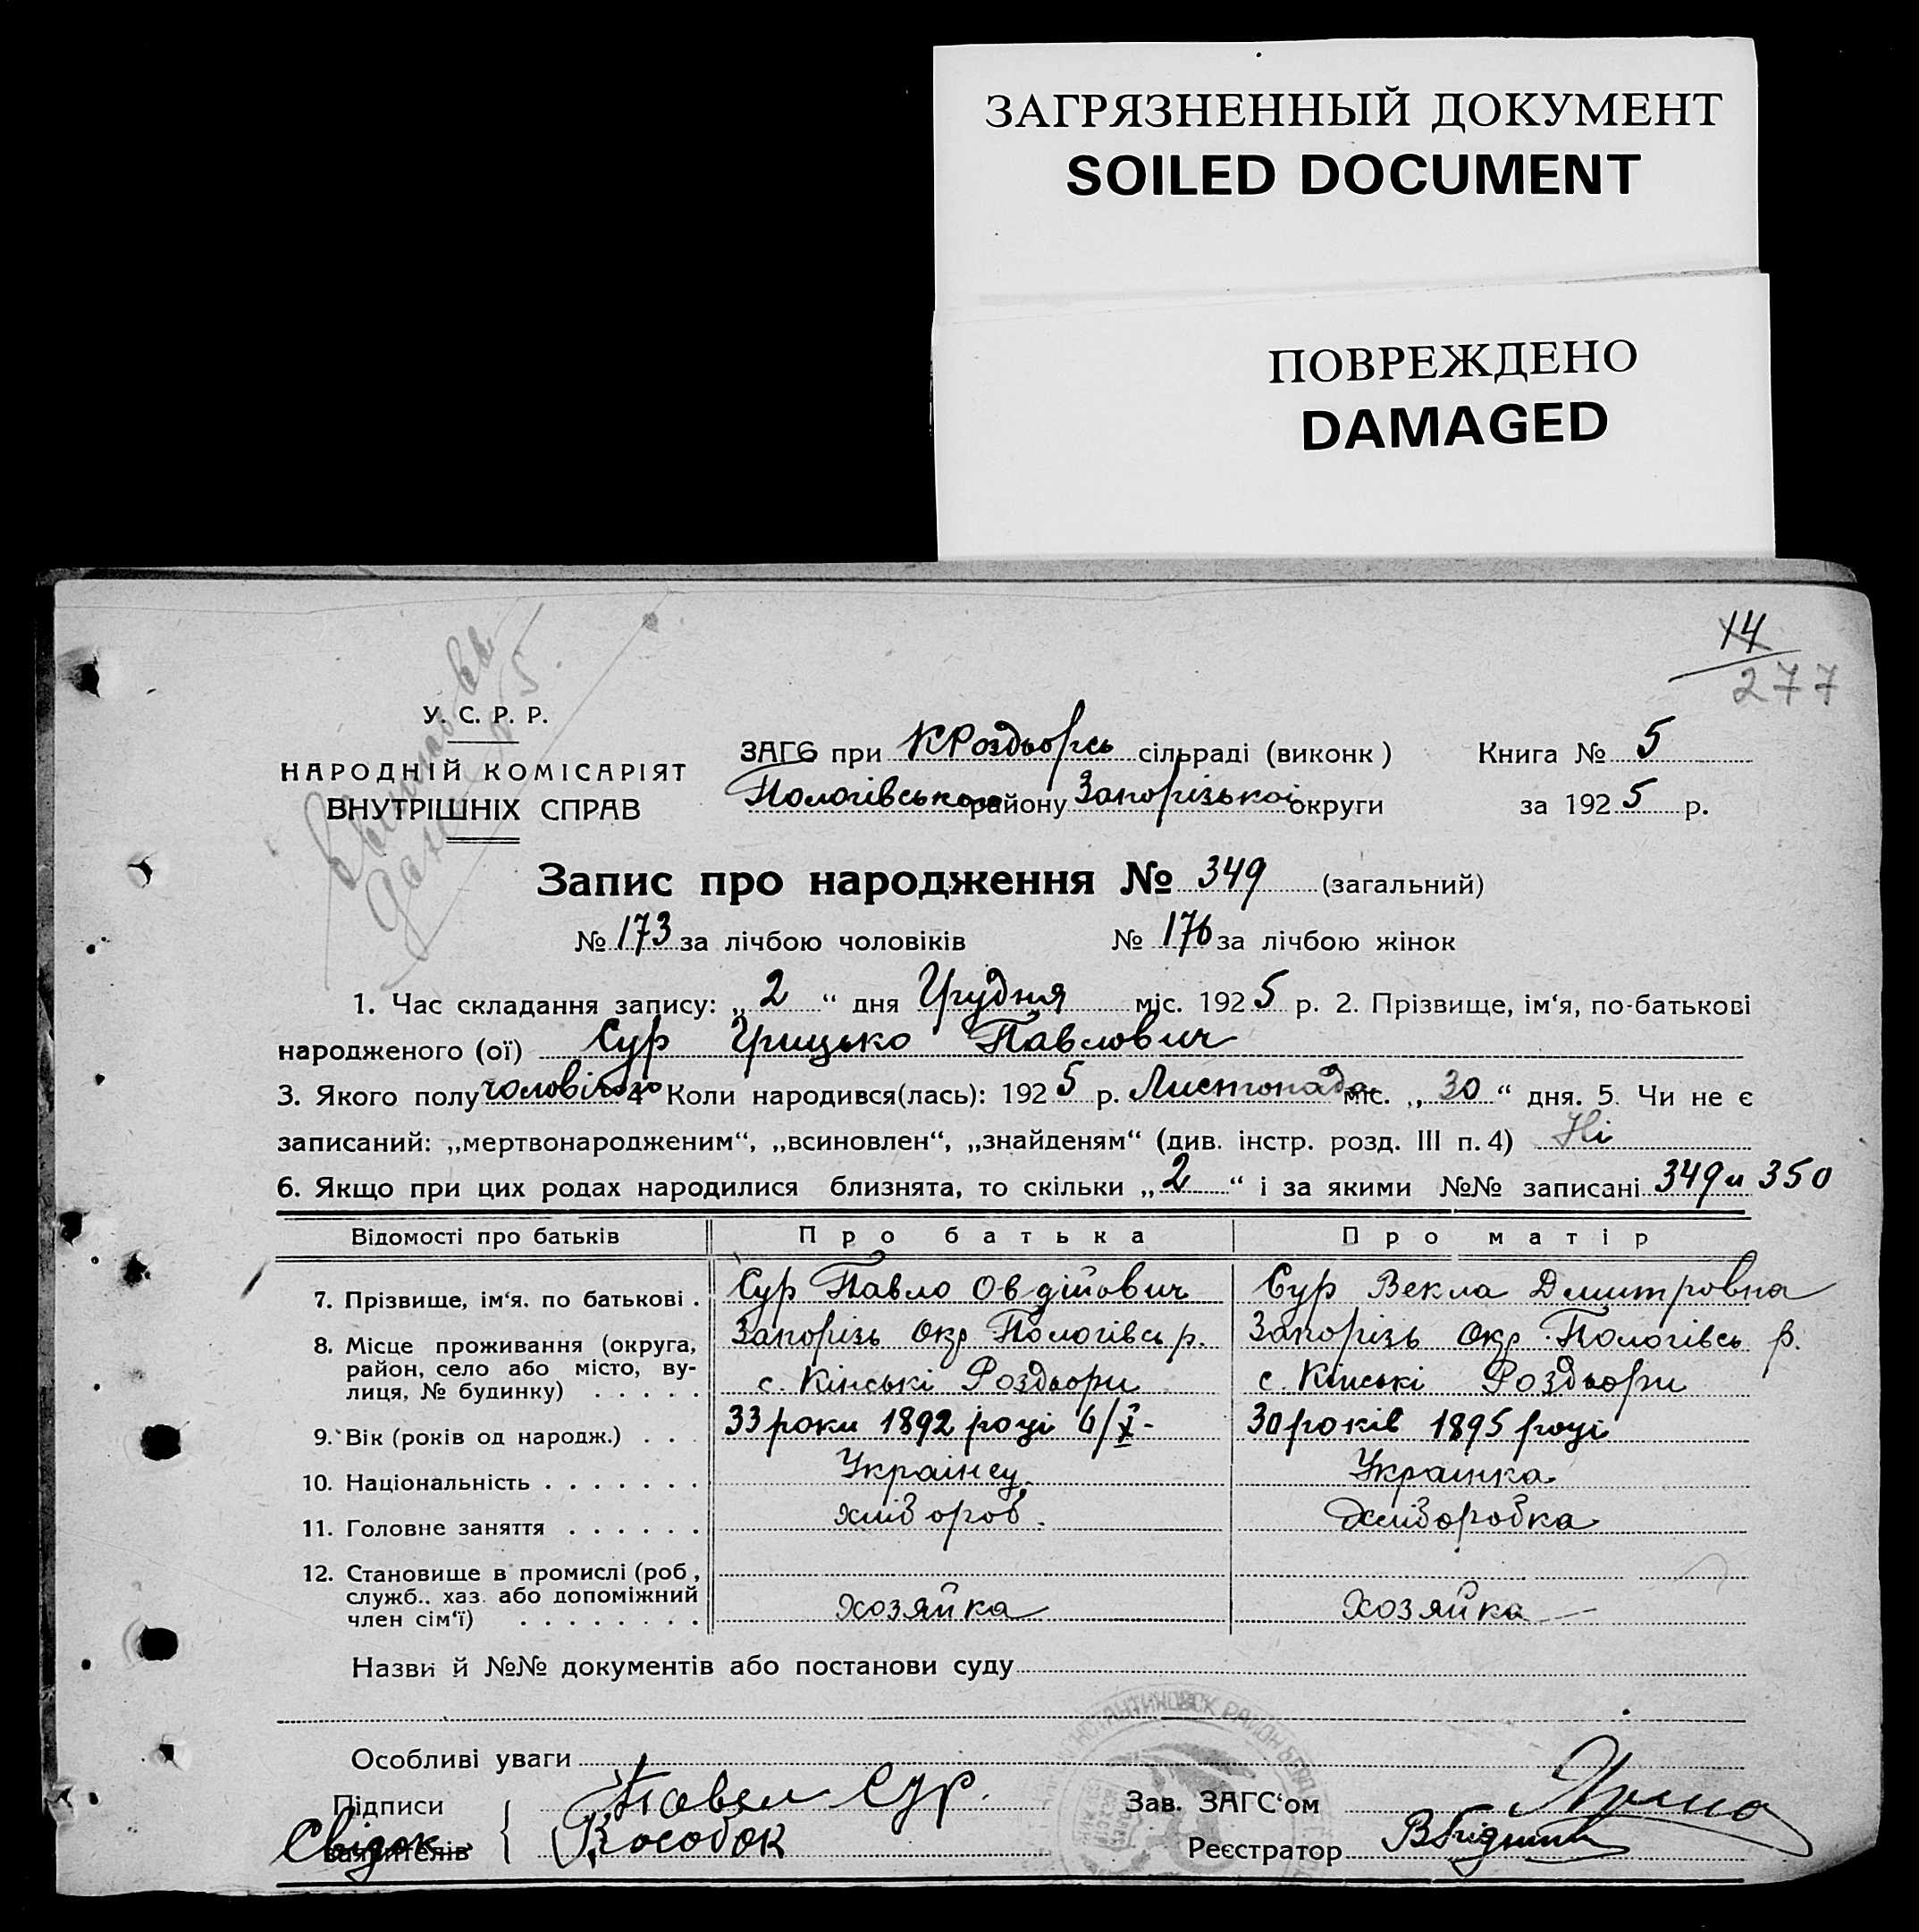 ЗАГРЯЗНЕННЫЙ ДОКУМЕНТ
SOILED DOCUMENT
ПОВРЕЖДЕНО
DAMAGED
14
277
У. С. Р. Р.
НАРОДНІЙ КОМІСАРІЯТ
ВНУТРІШНІХ СПРАВ
ЗАГС при КРоздьорсь сільраді (виконк) Книга № 5
Пологівського району Запорізької округи за 1925 р.
Запис про народження № 349 (загальний)
№ 173 за лічбою чоловіків № 176 за лічбою жінок
1. Час складання запису: „2“ дня Грудня міс. 1925 р. 2. Прізвище, ім‘я, по-батькові
народженого (ої) Сур Грицько Павлович
3. Якого полу чоловічого 4 Коли народився(лась): 1925 р. Листопада міс. „30“ дня. 5. Чи не є
записаний: „мертвонародженим“, „всиновлен“, „знайденям“ (див. інстр. розд. III п. 4) Ні
6. Якщо при цих родах народилися близнята, то скільки „2“ і за якими №№ записані 349 и 350
Відомості про батьків Про батька Про матір
7. Прізвище, ім‘я. по батькові . Сур Павло Овдійович Сур Векла Дмитровна
8. Місце проживання (округа, район, село або місто, ву- лиця, № будинку) . . . . . Запорізь Окр Пологівсь р. Запорізь Окр. Пологівсь р.
с. Кінські Роздьори с. Кінські Роздьори
9. Вік (років од народж.) . . . 33 роки 1892 році 6/X - 30 років 1895 році
10. Національність . . . . . . . Українец. Украинка
11. Головне заняття . . . . . . хлібороб. Хліборобка
12. Становище в промислі (роб, служб.. хаз. або допоміжний член сім‘ї) . . . . . . . . хозяйка хозяйка
Назви й №№ документів або постанови суду
Особливі уваги
Підписи Павел Сур. Зав. ЗАГС‘ом
Свідок заявителів Кособок Реєстратор